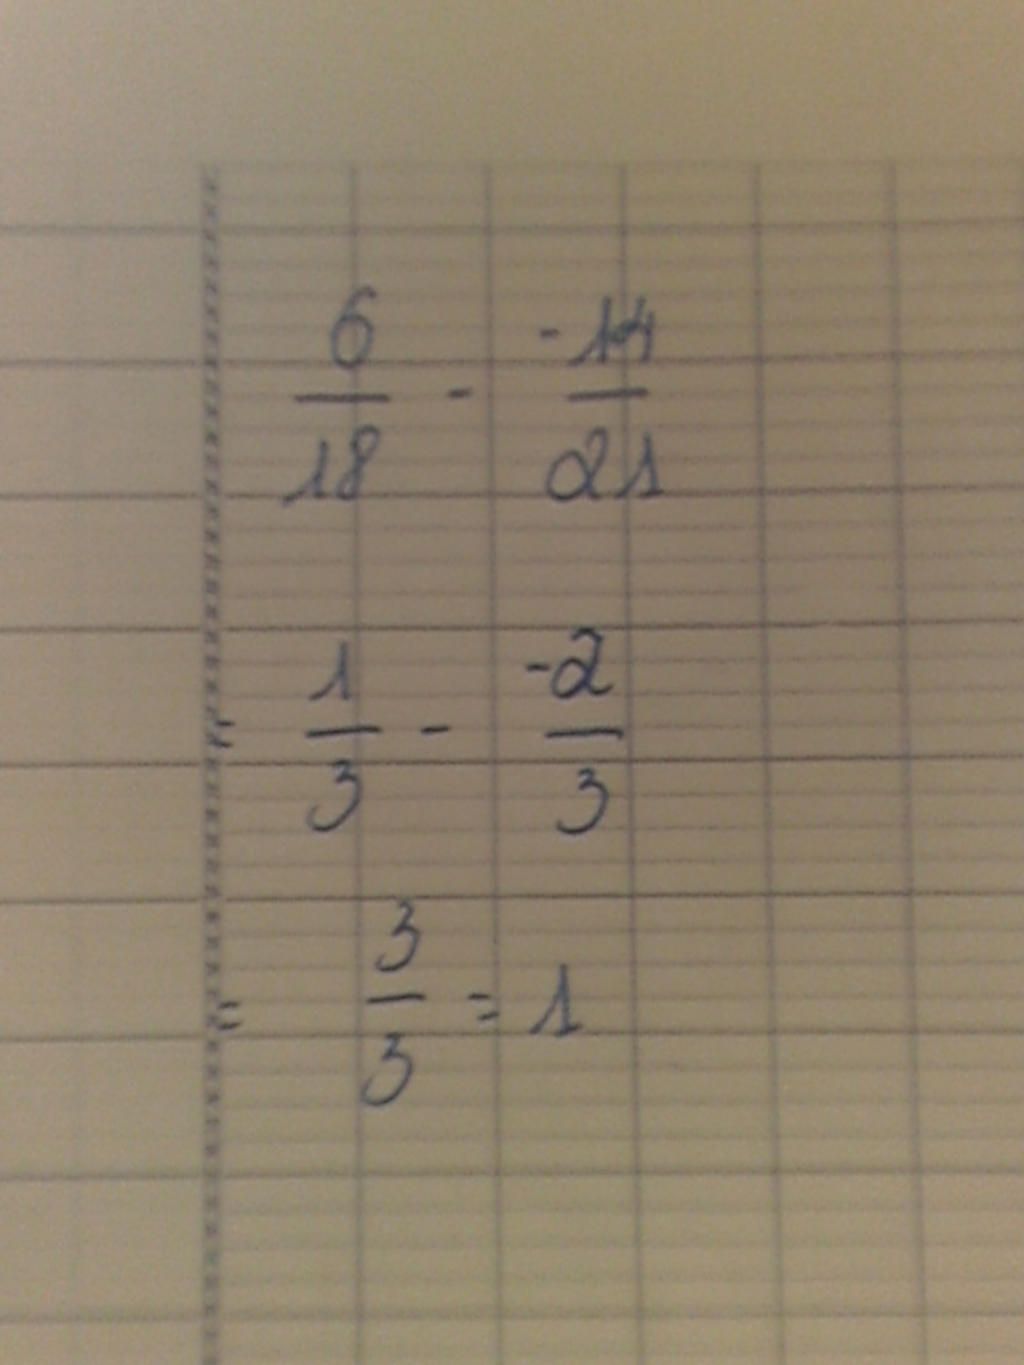 6/18 - -14/21
= 1/3 - -2/3
= 3/3 = 1